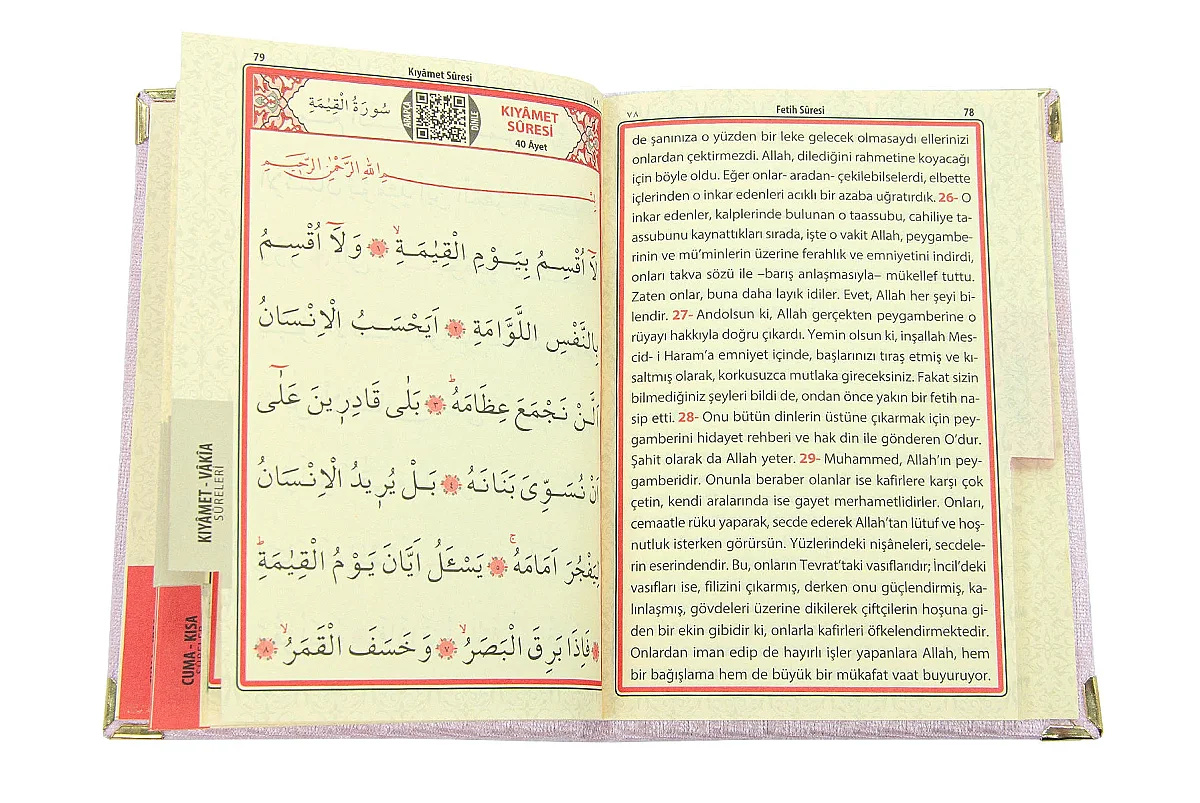 ٧٨
Fetih Sûresi
78
de şanınıza o yüzden bir leke gelecek olmasaydı ellerinizi
onlardan çektirmezdi. Allah, dilediğini rahmetine koyacağı
için böyle oldu. Eğer onlar- aradan- çekilebilselerdi, elbette
içlerinden o inkar edenleri acıklı bir azaba uğratırdık. 26- O
inkar edenler, kalplerinde bulunan o taassubu, cahiliye ta-
assubunu kaynattıkları sırada, işte o vakit Allah, peygambe-
rinin ve mü’minlerin üzerine ferahlık ve emniyetini indirdi,
onları takva sözü ile –barış anlaşmasıyla– mükellef tuttu.
Zaten onlar, buna daha layık idiler. Evet, Allah her şeyi bi-
lendir. 27- Andolsun ki, Allah gerçekten peygamberine o
rüyayı hakkıyla doğru çıkardı. Yemin olsun ki, inşallah Mes-
cid- i Haram’a emniyet içinde, başlarınızı tıraş etmiş ve kı-
saltmış olarak, korkusuzca mutlaka gireceksiniz. Fakat sizin
bilmediğiniz şeyleri bildi de, ondan önce yakın bir fetih na-
sip etti. 28- Onu bütün dinlerin üstüne çıkarmak için pey-
gamberini hidayet rehberi ve hak din ile gönderen O’dur.
Şahit olarak da Allah yeter. 29- Muhammed, Allah’ın pey-
gamberidir. Onunla beraber olanlar ise kafirlere karşı çok
çetin, kendi aralarında ise gayet merhametlidirler. Onları,
cemaatle rüku yaparak, secde ederek Allah’tan lütuf ve hoş-
nutluk isterken görürsün. Yüzlerindeki nişâneleri, secdele-
rin eserindendir. Bu, onların Tevrat’taki vasıflarıdır; İncil’deki
vasıfları ise, filizini çıkarmış, derken onu güçlendirmiş, ka-
lınlaşmış, gövdeleri üzerine dikilerek çiftçilerin hoşuna gi-
den bir ekin gibidir ki, onlarla kafirleri öfkelendirmektedir.
Onlardan iman edip de hayırlı işler yapanlara Allah, hem
bir bağışlama hem de büyük bir mükafat vaat buyuruyor.
79
Kıyâmet Sûresi
KIYÂMET
SÛRESİ
40 Âyet
ARAPÇA
DİNLE
سُورَةُ الْقِيٰمَةِ
بِسْمِ اللهِ الرَّحْمٰنِ الرَّحِيمِ
لَٓا اُقْسِمُ بِيَوْمِ الْقِيٰمَةِۙ ﴿١﴾ وَلَٓا اُقْسِمُ
بِالنَّفْسِ اللَّوَّامَةِ ﴿٢﴾ اَيَحْسَبُ الْاِنْسَانُ
اَلَّنْ نَجْمَعَ عِظَامَهُۜ ﴿٣﴾ بَلٰى قَادِرٖينَ عَلٰٓى
اَنْ نُسَوِّيَ بَنَانَهُ ﴿٤﴾ بَلْ يُرٖيدُ الْاِنْسَانُ
لِيَفْجُرَ اَمَامَهُۚ ﴿٥﴾ يَسْـَٔلُ اَيَّانَ يَوْمُ الْقِيٰمَةِۜ
فَاِذَا بَرِقَ الْبَصَرُۙ ﴿٧﴾ وَخَسَفَ الْقَمَرُۙ ﴿٨﴾
KIYÂMET - VÂKIA
SÛRELERİ
CUMA - KISA